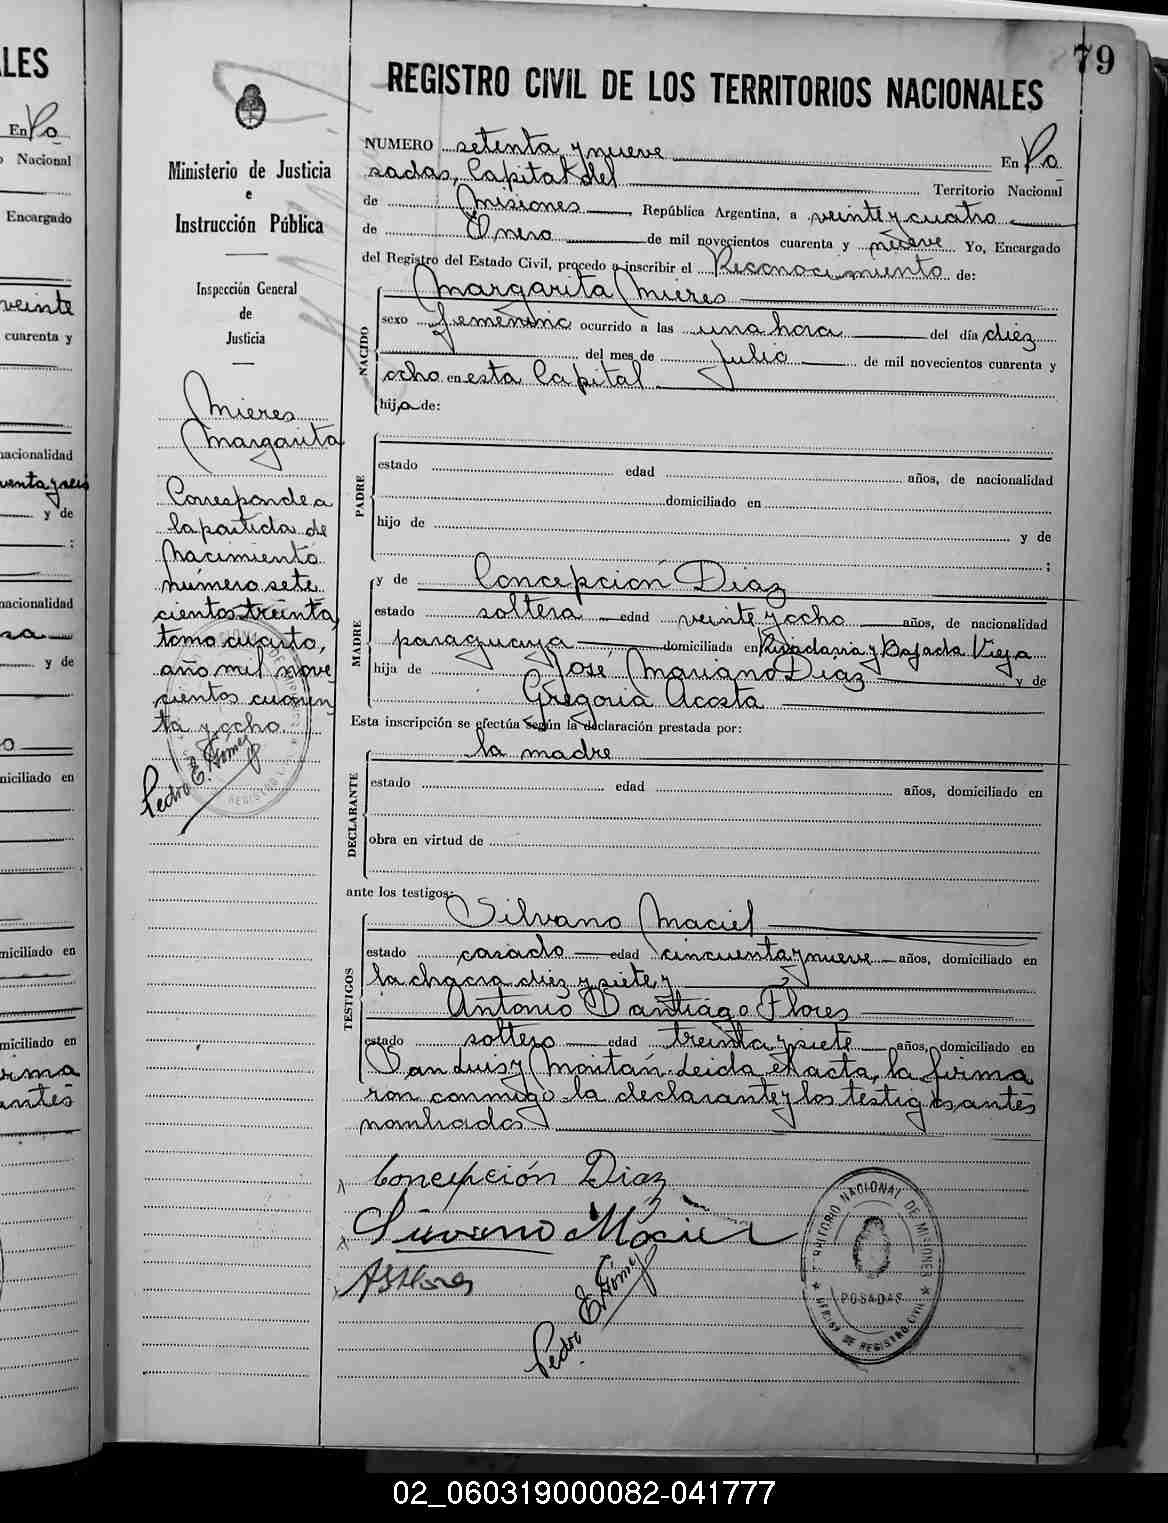 79
REGISTRO CIVIL DE LOS TERRITORIOS NACIONALES
Ministerio de Justicia
e
Instrucción Pública
Inspección General
de
Justicia
Mieres
Margarita
Corresponde a
la partida de
Nacimiento
número sete
cientos treinta,
tomo cuarto,
año mil nove
cientos cuaren
ta y ocho
Pedro E. Gómez
NUMERO setenta y nueve En Po
sadas, Capital del Territorio Nacional
de Misiones República Argentina, a veinte y cuatro
de Enero de mil novecientos cuarenta y nueve Yo, Encargado
del Registro del Estado Civil, procedo a inscribir el Reconocimiento de:
Margarita Mieres
NACIDO
sexo femenino ocurrido a las una hora del día diez
del mes de Julio de mil novecientos cuarenta y
ocho en esta Capital
hija de:
PADRE
estado edad años, de nacionalidad
domiciliado en
hijo de y de
;
MADRE
y de Concepción Diaz
estado soltera edad veinte y ocho años, de nacionalidad
paraguaya domiciliada en Rivadavia y Bajada Vieja
hija de José Mariano Diaz y de
Gregoria Acosta
Esta inscripción se efectúa según la declaración prestada por:
la madre
DECLARANTE
estado edad años, domiciliado en
obra en virtud de
ante los testigos:
TESTIGOS
Silvano Maciel
estado casado edad cincuenta y nueve años, domiciliado en
la chacra diez y siete y
Antonio Santiago Flores
estado soltero edad treinta y siete años, domiciliado en
San Luis y Moritán. Leida el acta, la firma
ron conmigo la declarante y los testigos antes
nombrados
Concepción Diaz
Silvano Maciel
ASFlores
Pedro E. Gómez
TERRITORIO NACIONAL DE MISIONES
POSADAS
OFICINA DE REGISTRO CIVIL
LES
En Po
Nacional
Encargado
veinte
cuarenta y
nacionalidad
y de
:
nacionalidad
y de
miciliado en
miciliado en
miciliado en
irma
antes
02_060319000082-041777